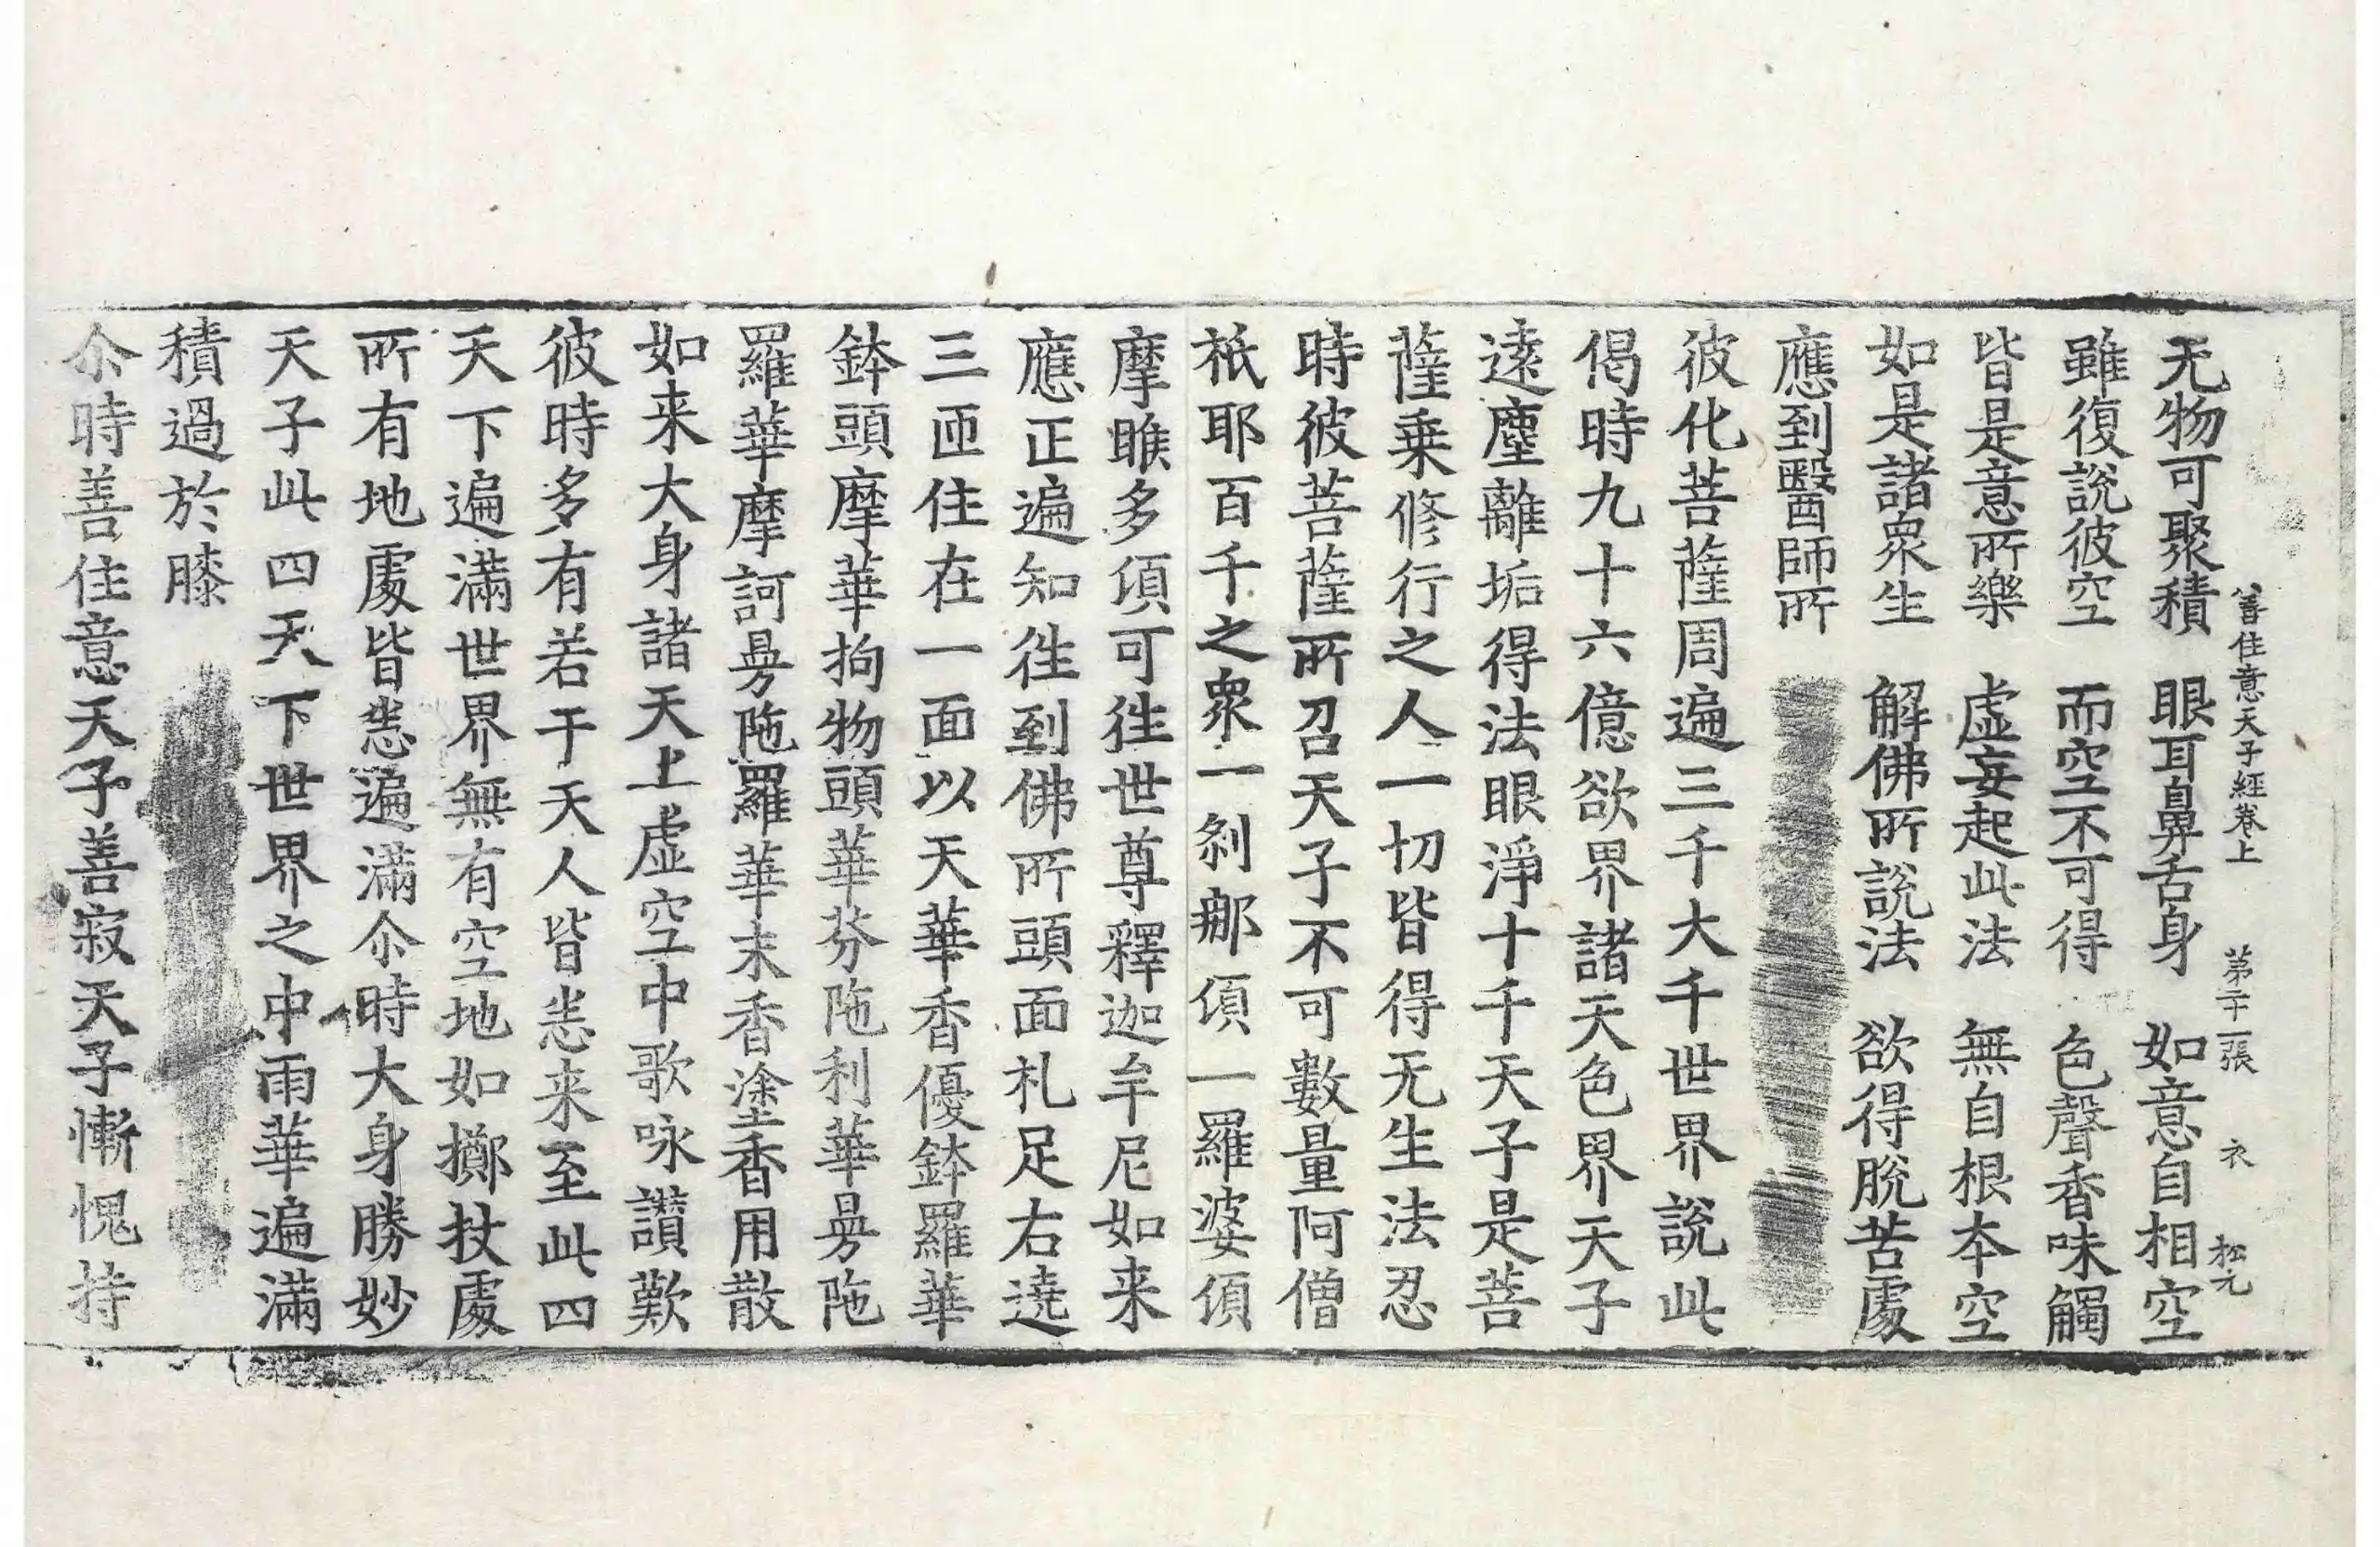 善住意天子經卷上　第二十一張　衣　松元
无物可聚積　眼耳鼻舌身　如意自相空
雖復說彼空　而空不可得　色聲香味觸
皆是意所樂　虛妄起此法　無自根本空
如是諸衆生　解佛所說法　欲得脫苦處
應到醫師所
彼化菩薩周遍三千大千世界說此
偈時九十六億欲界諸天色界天子
遠塵離垢得法眼淨十千天子是菩
薩乗修行之人一切皆得无生法忍
時彼菩薩所召天子不可數量阿僧
祇耶百千之衆一剎那湏一羅婆湏
摩睺多湏可徃世尊釋迦牟尼如来
應正遍知徃到佛所頭面礼足右遶
三匝住在一面以天華香優鉢羅華
鉢頭摩華拘物頭華芬陁利華曼陁
羅華摩訶曼陁羅華末香塗香用散
如来大身諸天上虛空中歌咏讚歎
彼時多有若干天人皆悉来至此四
天下遍滿世界無有空地如擲杖處
所有地處皆悉遍滿尒時大身勝妙
天子此四天下世界之中雨華遍滿
積過於膝
尒時善住意天子善寂天子慚愧持